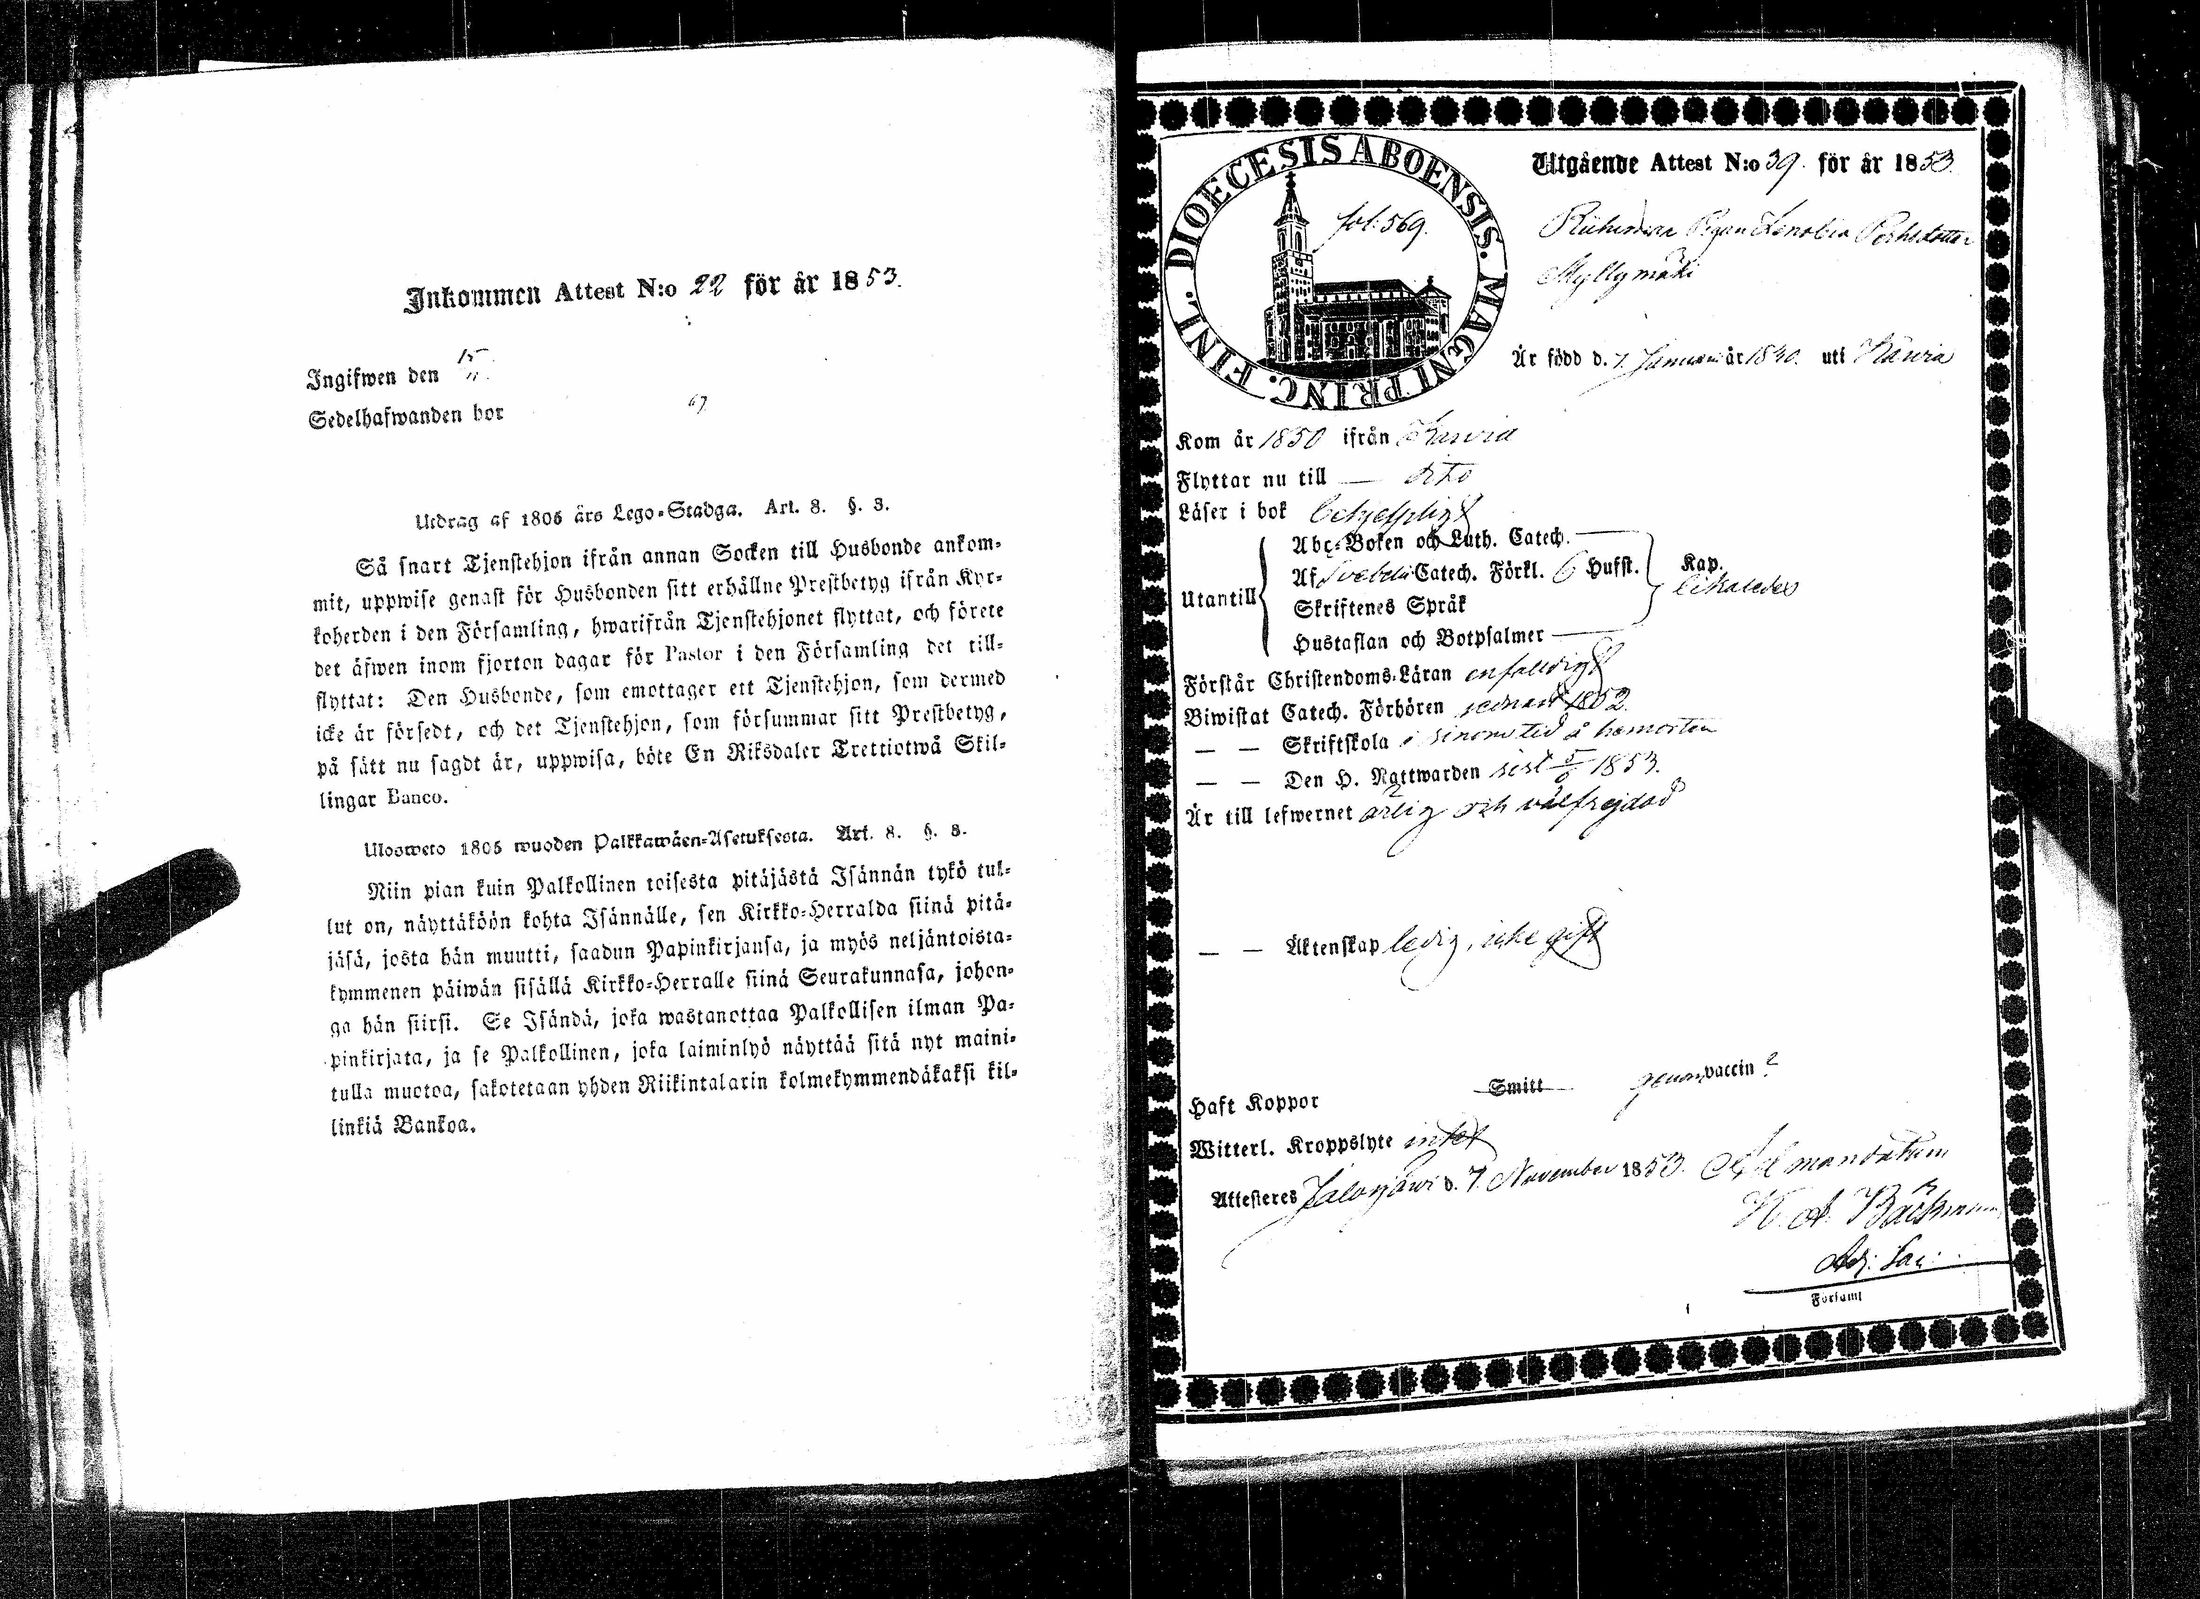 Inkommen Attest N:o 22 för år 1853.
Ingifwen den 15/11.
Sedelhafwanden bor
67
Utdrag af 1805 års Lego-Stadga. Art. 8. §. 3.
Så snart Tjenstehjon ifrån annan Socken till Husbonde ankom-
mit, uppwise genast för Husbonden sitt erhållne Prestbetyg ifrån Kyr-
koherden i den Församling, hwarifrån Tjenstehjonet flyttat, och förete
det äfwen inom fjorton dagar för Pastor i den Församling det till-
flyttat: Den Husbonde, som emottager ett Tjenstehjon, som dermed
icke är försedt, och det Tjenstehjon, som försummar sitt Prestbetyg,
på sätt nu sagdt är, uppwisa, böte En Riksdaler Trettiotwå Skil-
lingar Banco.
Ulosweto 1805 wuoden Palkkawäen-Asetuksesta. Art. 8. §. 3.
Niin pian kuin Palkollinen toisesta pitäjästä Isännän tykö tul-
lut on, näyttäköön kohta Isännälle, sen Kirkko-Herralda siinä pitä-
jäsä, josta hän muutti, saadun Papinkirjansa, ja myös neljäntoista-
kymmenen päiwän sisällä Kirkko-Herralle siinä Seurakunnasa, johon-
ga hän siirsi. Se Isändä, joka wastanottaa Palkollisen ilman Pa-
pinkirjata, ja se Palkollinen, joka laiminlyö näyttää sitä nyt maini-
tulla muotoa, sakotetaan yhden Riikintalarin kolmekymmendäkaksi kil-
linkiä Bankoa.
FINL. DIOECESIS ABOENSIS. MAGNI PRINC.
fol: 569.
Utgående Attest N:o 39. för år 1853.
Pigan Zenobia
Myllymäki
Är född d. 7 Januari år 1830. uti Karvia
Kom år 1850 ifrån Karvia
Flyttar nu till — dito
Läser i bok behjelpligt
Abc-Boken och Luth. Catech.
Af Svebelii Catech. Förkl. 6 Hufst. Kap.
Utantill likaledes
Skriftenes Språk
Hustaflan och Botpsalmer
Förstår Christendoms-Läran enfaldigt
Biwistat Catech. Förhören senast 1852.
— — Skriftskola i sinom tid å hemorten
— — Den H. Nattwarden sist 5/6 1853.
Är till lefwernet ärlig och välfrejdad
— — Äktenskap ledig, icke gift
Haft Koppor Smitt genom vaccin?
Witterl. Kroppslyte intet
Attesteres Jalasjärvi d. 7 November 1853. Ad mandatum
K. A. Bäckman
Adj: Sac:
Församl